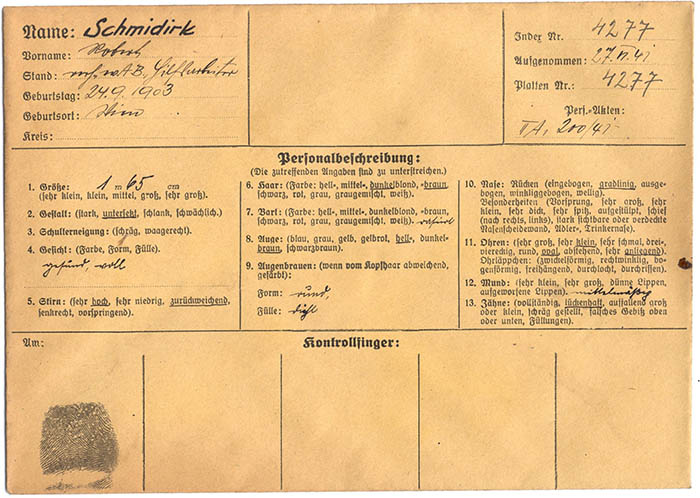 Name: Schmidirk
Vorname: Robert
Stand: Hilfsarbeiter
Geburtstag: 24.9.1903
Geburtsort: Wien
Kreis:
Index Nr. 4277
Aufgenommen: 27.VI.41
Platten Nr.: 4277
Pers.-Akten:
200/41
Personalbeschreibung:
(Die zutreffenden Angaben sind zu unterstreichen.)
1. Größe: 1 m 65 cm
(sehr klein, klein, mittel, groß, sehr groß).
2. Gestalt: (stark, untersetzt, schlank, schwächlich).
3. Schulterneigung: (schräg, waagerecht).
4. Gesicht: (Farbe, Form, Fülle).
gesund, voll
5. Stirn: (sehr hoch, sehr niedrig, zurückweichend,
senkrecht, vorspringend).
6. Haar: (Farbe: hell-, mittel-, dunkelblond, -braun,
schwarz, rot, grau, graugemischt, weiß).
7. Bart: (Farbe: hell-, mittel-, dunkelblond, -braun,
schwarz, rot, grau, graugemischt, weiß). rasiert
8. Auge: (blau, grau, gelb, gelbrot, hell-, dunkel-
braun, schwarzbraun).
9. Augenbrauen: (wenn vom Kopfhaar abweichend,
gefärbt):
Form: rund,
Fülle: dicht
10. Nase: Rücken (eingebogen, gradlinig, ausge-
bogen, winkliggebogen, wellig).
Besonderheiten (Vorsprung, sehr groß, sehr
klein, sehr dick, sehr spitz, aufgestülpt, schief
(nach rechts, links), stark sichtbare oder verdeckte
Nasenscheidewand, Adler-, Trinkernase).
11. Ohren: (sehr groß, sehr klein, sehr schmal, drei-
viereckig, rund, oval, abstehend, sehr anliegend).
Ohrläppchen: (zwickelförmig, rechtwinklig, bo-
genförmig, freihängend, durchlocht, durchrissen).
12. Mund: (sehr klein, sehr groß, dünne Lippen,
aufgeworfene Lippen). mittelmäßig
13. Zähne: (vollständig, lückenhaft, auffallend groß
oder klein, schräg gestellt, falsches Gebiß oben
oder unten, Füllungen).
Am:
Kontrollfinger: